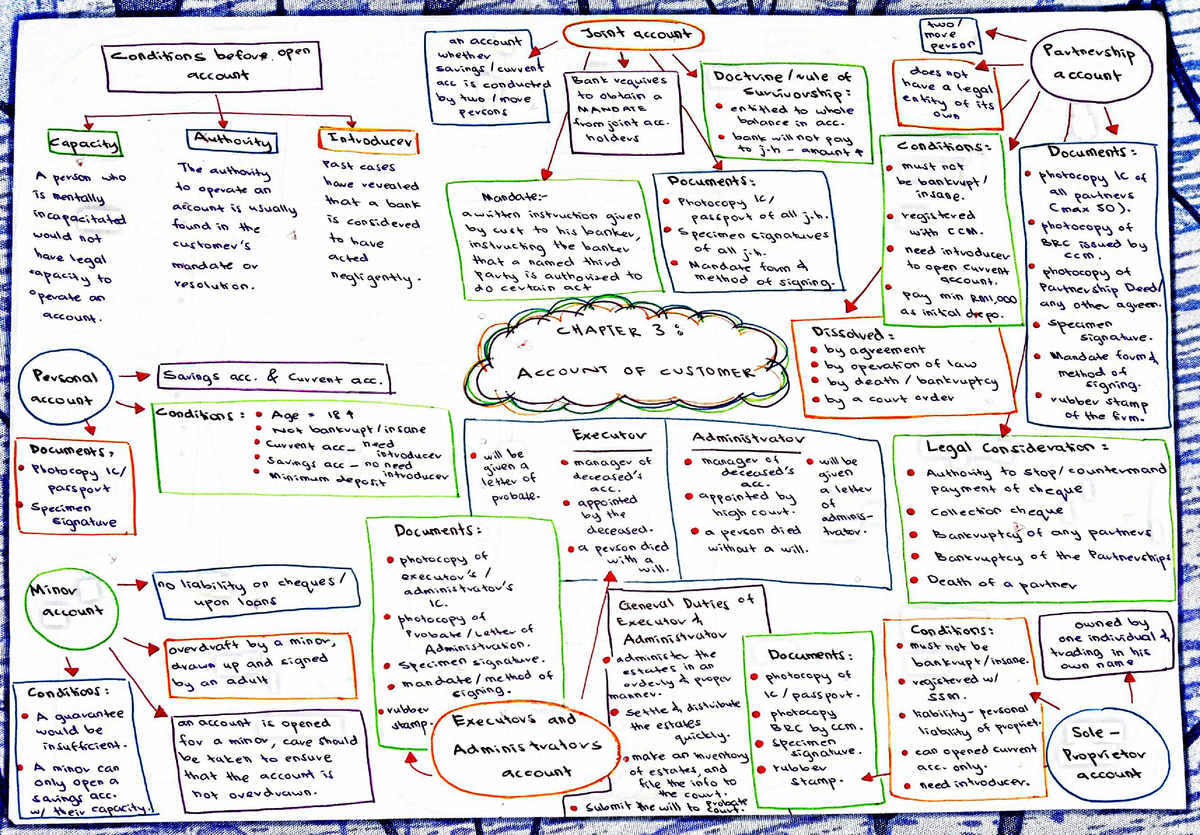 Conditions before open
account
Capacity
A person who
is mentally
incapacitated
would not
have legal
capacity to
operate an
account.
Authority
The authority
to operate an
account is usually
found in the
customer's
mandate or
resolution.
Introducer
Past cases
have revealed
that a bank
is considered
to have
acted
negligently.
Joint account
an account
whether
savings/current
acc is conducted
by two/more
persons
Bank requires
to obtain a
MANDATE
from joint acc.
holders
Doctrine/rule of
Survivorship:
• entitled to whole
balance in acc.
• bank will not pay
to j.h - amount ↑
Mandate:-
a written instruction given
by cust to his banker,
instructing the banker
that a named third
party is authorized to
do certain act
Documents:
• Photocopy IC/
passport of all j.h.
• Specimen signatures
of all j.h.
• Mandate form &
method of signing.
Partnership
account
two/
more
person
does not
have a legal
entity of its
own
Conditions:
• must not
be bankrupt/
insane.
• registered
with CCM.
• need introducer
to open current
account.
• pay min RM1,000
as initial depo.
Documents:
• photocopy IC of
all partners
(max 50).
• photocopy of
BRC issued by
CCM.
• photocopy of
Partnership Deed/
any other agreem.
• Specimen
signature.
• Mandate form &
method of
signing.
• rubber stamp
of the firm.
Dissolved:
• by agreement
• by operation of law
• by death / bankruptcy
• by a court order
Legal Consideration:
• Authority to stop/countermand
payment of cheque
• Collection cheque
• Bankruptcy of any partners
• Bankruptcy of the Partnerships
• Death of a partner
CHAPTER 3:
ACCOUNT OF CUSTOMER
Personal
account
Savings acc. & Current acc.
Conditions: • Age = 18 ↑
• Not bankrupt/insane
• Current acc - need
introducer
• Savings acc - no need
introducer
• Minimum deposit
Documents:
• Photocopy IC/
passport
• Specimen
signature
Minor
account
no liability on cheques/
upon loans
overdraft by a minor,
drawn up and signed
by an adult
an account is opened
for a minor, care should
be taken to ensure
that the account is
not overdrawn.
Conditions:
• A guarantee
would be
insufficient.
• A minor can
only open a
savings acc.
w/ their capacity.
Executors and
Administrators
account
Executor
• will be
given a
letter of
probate.
• manager of
deceased's
acc.
• appointed
by the
deceased.
• a person died
with a
will.
Administrator
• manager of
deceased's
acc.
• appointed by
high court.
• a person died
without a will.
• will be
given
a letter
of
adminis-
trator.
Documents:
• photocopy of
executor's /
administrator's
IC.
• photocopy of
Probate/Letter of
Administration.
• Specimen signature.
• mandate/method of
signing.
• rubber
stamp.
General Duties of
Executor &
Administrator
• administer the
estates in an
orderly & proper
manner.
• settle & distribute
the estates
quickly.
• make an inventory
of estates, and
file the info to
the court.
• submit the will to Probate
Court.
Sole-
Proprietor
account
owned by
one individual &
trading in his
own name
Conditions:
• must not be
bankrupt/insane.
• registered w/
SSM.
• liability - personal
liability of propriet.
• can opened current
acc. only.
• need introducer.
Documents:
• photocopy of
IC/passport.
• photocopy
BRC by CCM.
• Specimen
signature.
• rubber
stamp.